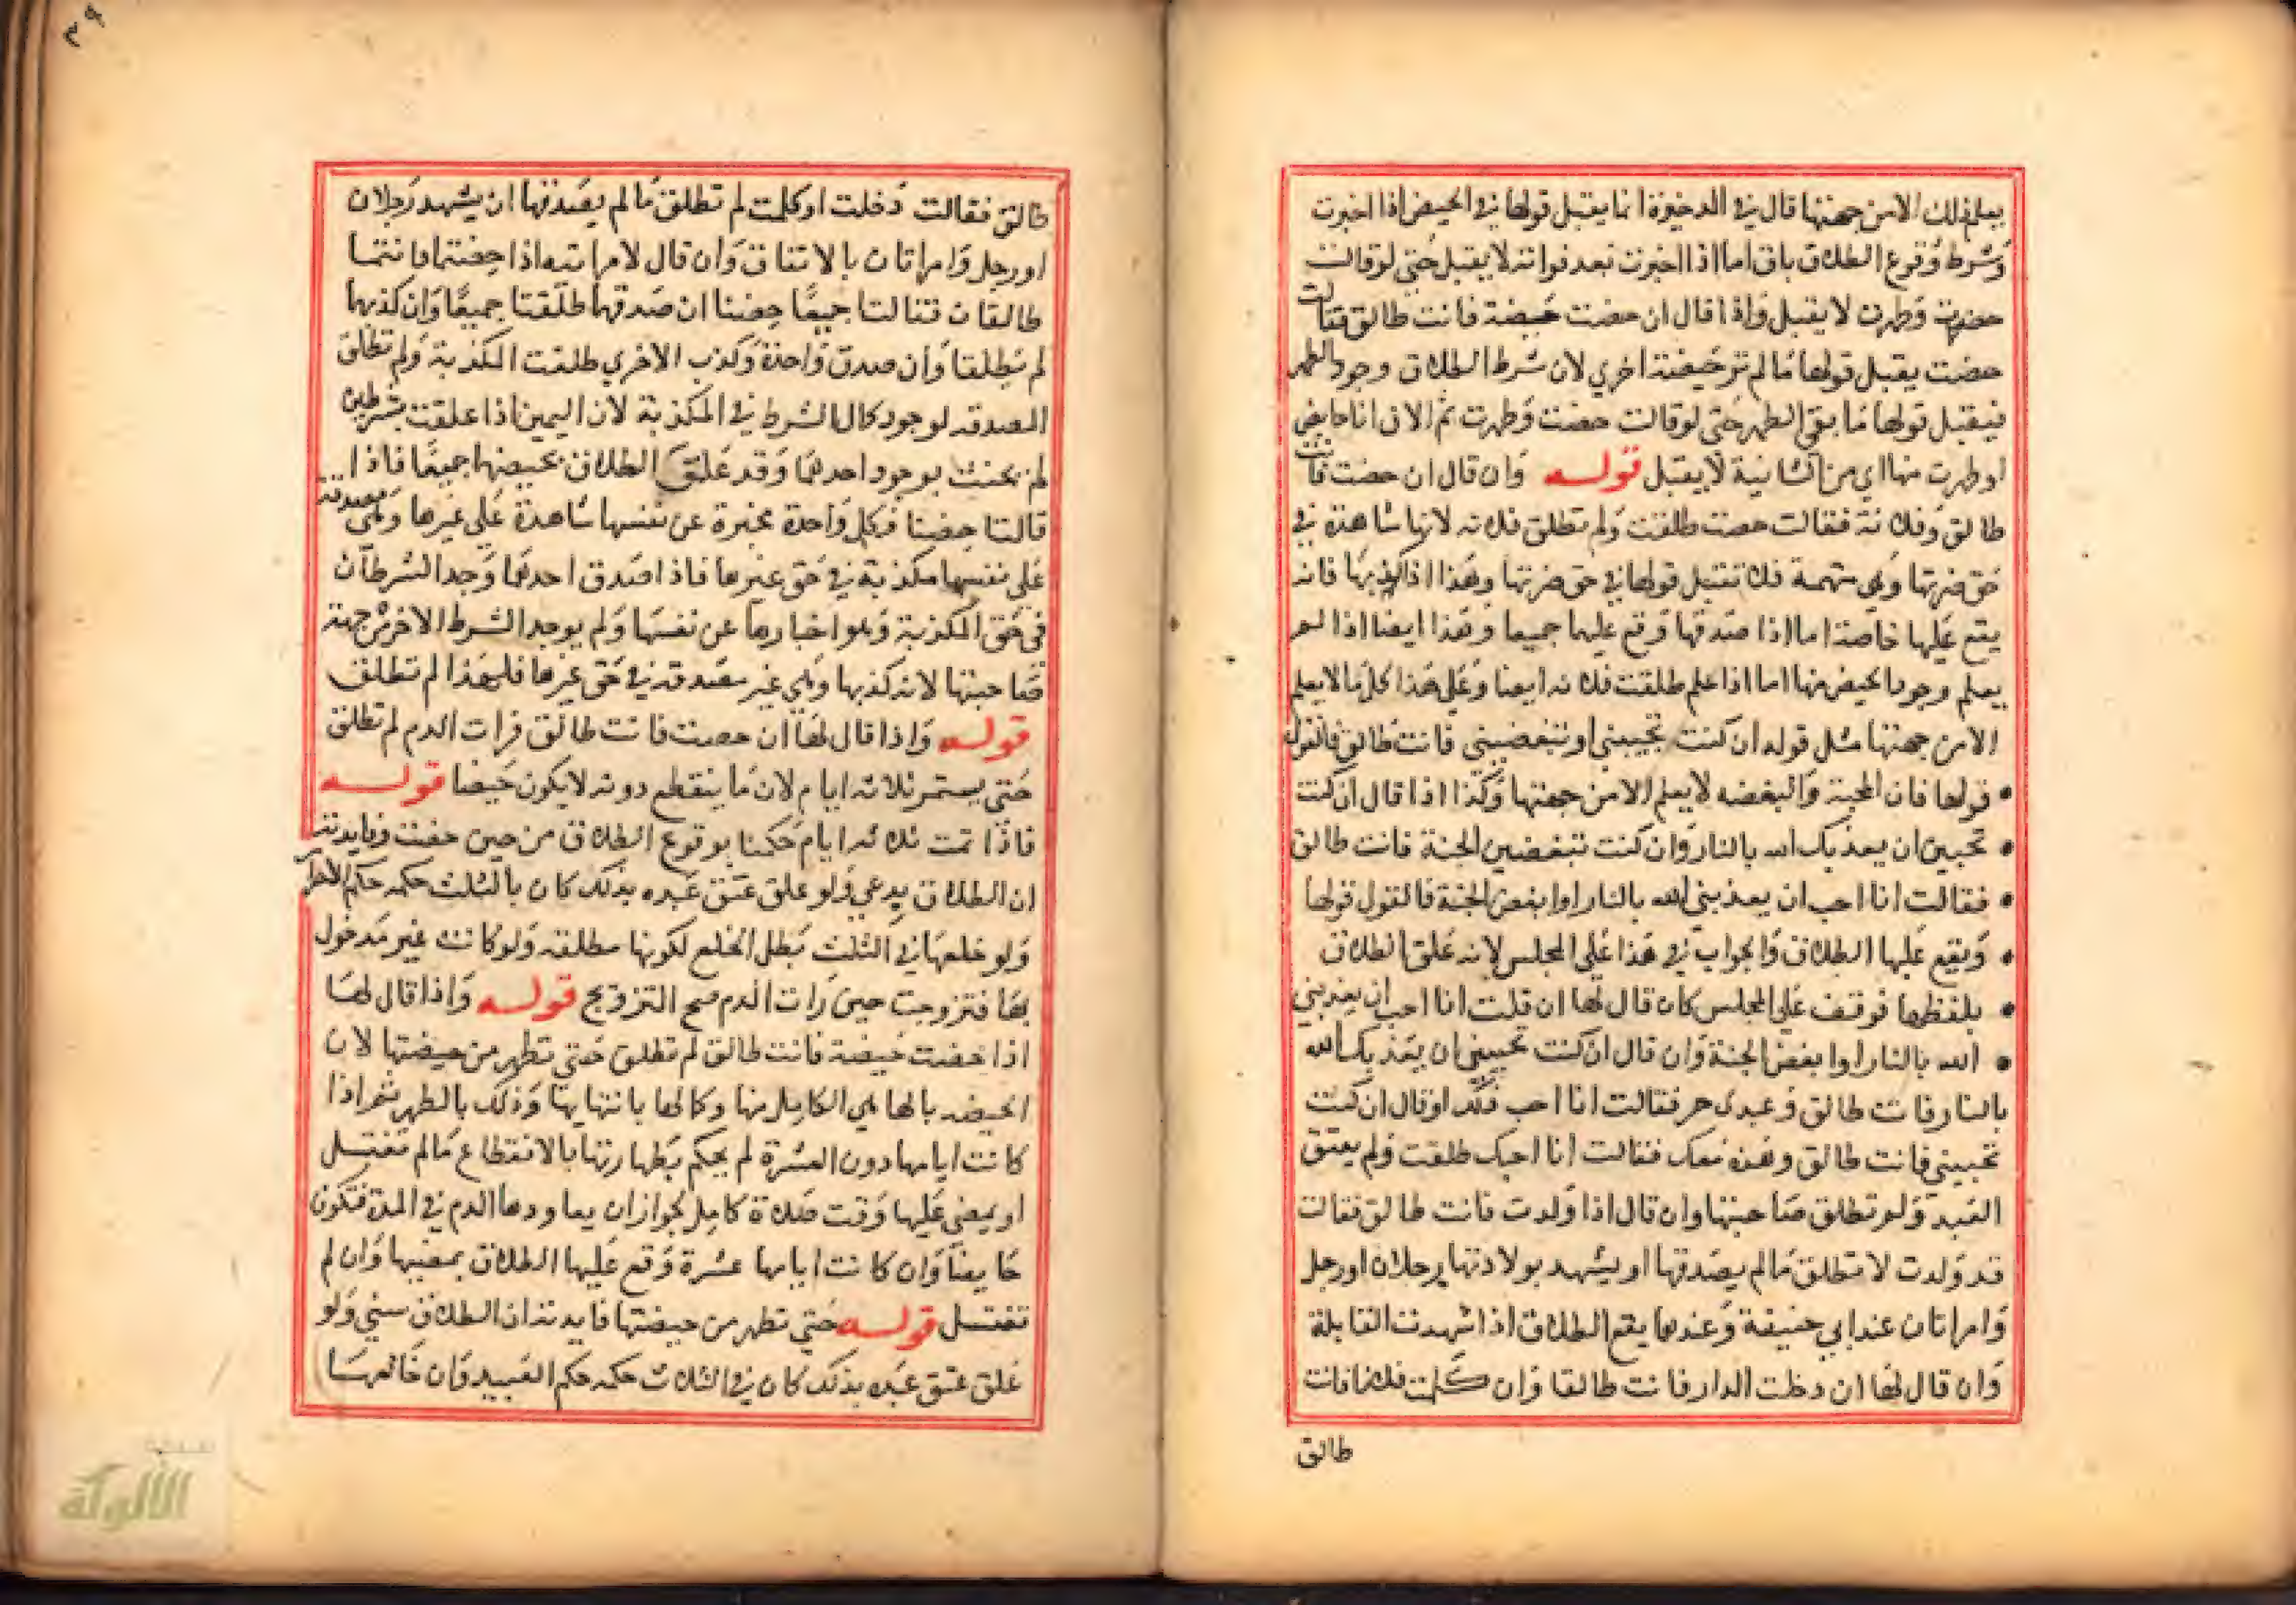 يعلم ذلك الا من جهتها قال في الدخيرة انما يقبل قولها في الحيض اذا اخبرت
وشرط وقوع الطلاق باق اما اذا اخبرت بعد فواته لا يقبل حتى لو قالت
حضت وطهرت لا يقبل واذا قال ان حضت حيضة فانت طالق فقالت
حضت يقبل قولها ما لم تر حيضة اخري لان شرط الطلاق وجود الطهر
فيقبل قولها ما بقي الطهر حتى لو قالت حضت وطهرت ثم الان انا حايض
او طهرت منها اي من الثانية لا يقبل قوله وان قال ان حضت فانت
طالق وفلانة فقالت حضت طلقت ولم تطلق فلانه لانها شاهدة في
حق ضرتها وهي متهمة فلا تقبل قولها في حق ضرتها وهذا اذا كذبها فانه
يقع عليها خاصة اما اذا صدقها وقع عليهما جميعا وهذا ايضا اذا لم
يعلم وجود الحيض منها اما اذا علم طلقت فلانه ايضا وعلى هذا كل ما لا يعلم
الا من جهتها مثل قوله ان كنت تحبيني او تبغضيني فانت طالق فالقول
قولها فان المحبة والبغضه لا يعلم الا من جهتها وكذا اذا قال ان كنت
تحبين ان يعذبك الله بالنار وان كنت تبغضين الجنة فانت طالق
فقالت انا احب ان يعذبني الله بالنار او ابغض الجنة فالقول قولها
ويقع عليها الطلاق والجواب في هذا على المجلس لانه علق الطلاق
بلفظها فوقف على المجلس كان قال لها ان قلت انا احب ان يعذبني
الله بالنار او ابغض الجنة وان قال ان كنت تحبين ان يعذبك الله
بالنار فانت طالق وعبدى حر فقالت انا احب ذلك او قال ان كنت
تحبيني فانت طالق وهذه معك فقالت انا احبك طلقت ولم يعتق
العبد ولم تطلق صاحبتها وان قال اذا ولدت فانت طالق فقالت
قد ولدت لا تطلق ما لم يصدقها او يشهد بولادتها رجلان او رجل
وامراتان عند ابي حنيفة وعندهما يقع الطلاق اذا شهدت القابلة
وان قال لها ان دخلت الدار فانت طالقا وان كلمت فلانا فانت
طالق
٣٩
طالق فقالت دخلت او كلمت لم تطلق ما لم يصدقها ان يشهد رجلان
او رجل وامراتان بالاتفاق وان قال لامراتيه اذا حضتما فانتما
طالقان فقالتا جميعا حضنا ان صدقهما طلقتا جميعا وان كذبهما
لم تطلقا وان صدق واحدة وكذب الاخري طلقت المكذبة ولم تطلق
المصدقه لوجود كمال الشرط في المكذبة لان اليمين اذا علقت بشرطين
لم يحنث بوجود احدهما وقد علق الطلاق بحيضهما جميعا فاذا
قالتا حضنا فكل واحدة مخبرة عن نفسها شاهدة على غيرها وهي مصدقة
على نفسها مكذبة في حق غيرها فاذا صدق احدهما وجد الشرطان
في حق المكذبة وهو اخبارها عن نفسها ولم يوجد الشرط الاخر من جهة
صاحبتها لانه كذبها وهي غير مصدقه في حق غيرها فلهذا لم تطلق
قوله واذا قال لها ان حضت فانت طالق فرات الدم لم تطلق
حتى يستمر ثلاثه ايام لان ما ينقطع دونه لا يكون حيضا قوله
فاذا تمت ثلاثه ايام حكمنا بوقوع الطلاق من حين حضت وفايدته
ان الطلاق بدعي ولو علق عتق عبده بذلك كان بالثلث حكمه حكم الاحرار
ولو خلعها في الثلث بطل الخلع لكونها مطلقه ولو كانت غير مدخول
بها فتزوجت حين رات الدم صح التزويج قوله واذا قال لها
اذا حضت حيضة فانت طالق لم تطلق حتى تطهر من حيضتها لان
الحيضه بالها هي الكامل منها وكمالها بانتهايها وذلك بالطهر ثم اذا
كانت ايامها دون العشرة لم يحكم بطهارتها بالانقطاع ما لم تغتسل
او يمضي عليها وقت صلاة كامل لجواز ان يعاودها الدم في المدة فتكون
حايضا وان كانت ايامها عشرة وقع عليها الطلاق بمضيها وان لم
تغتسل قوله حتى تطهر من حيضتها فايدته ان الطلاق سني ولو
علق عتق عبده بذلك كان في الثلاث حكمه حكم العبيد وان خالعها
الألوكة